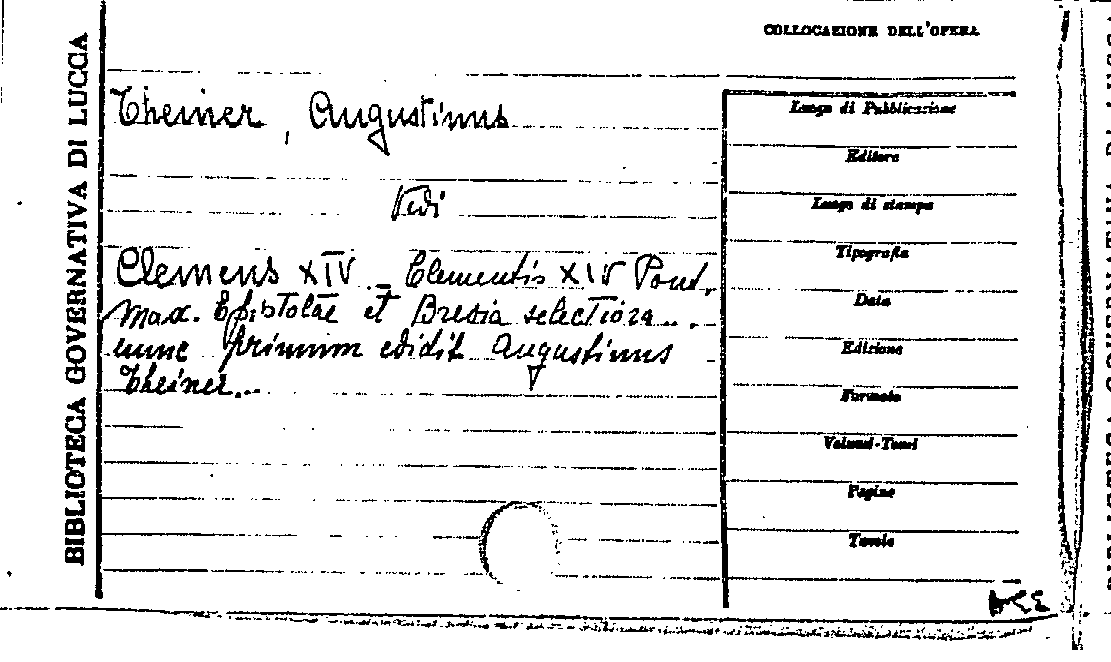 BIBLIOTECA GOVERNATIVA DI LUCCA
COLLOCAZIONE DELL'OPERA
Theiner, Augustinus
Vedi
Clemens XIV - Clementis XIV Pont.
Max. Epistolae et Brevia selectiora...
nunc primum edidit Augustinus
Theiner...
Luogo di Pubblicazione
Editore
Luogo di stampa
Tipografia
Data
Edizione
Formato
Volumi-Tomi
Pagine
Tavole